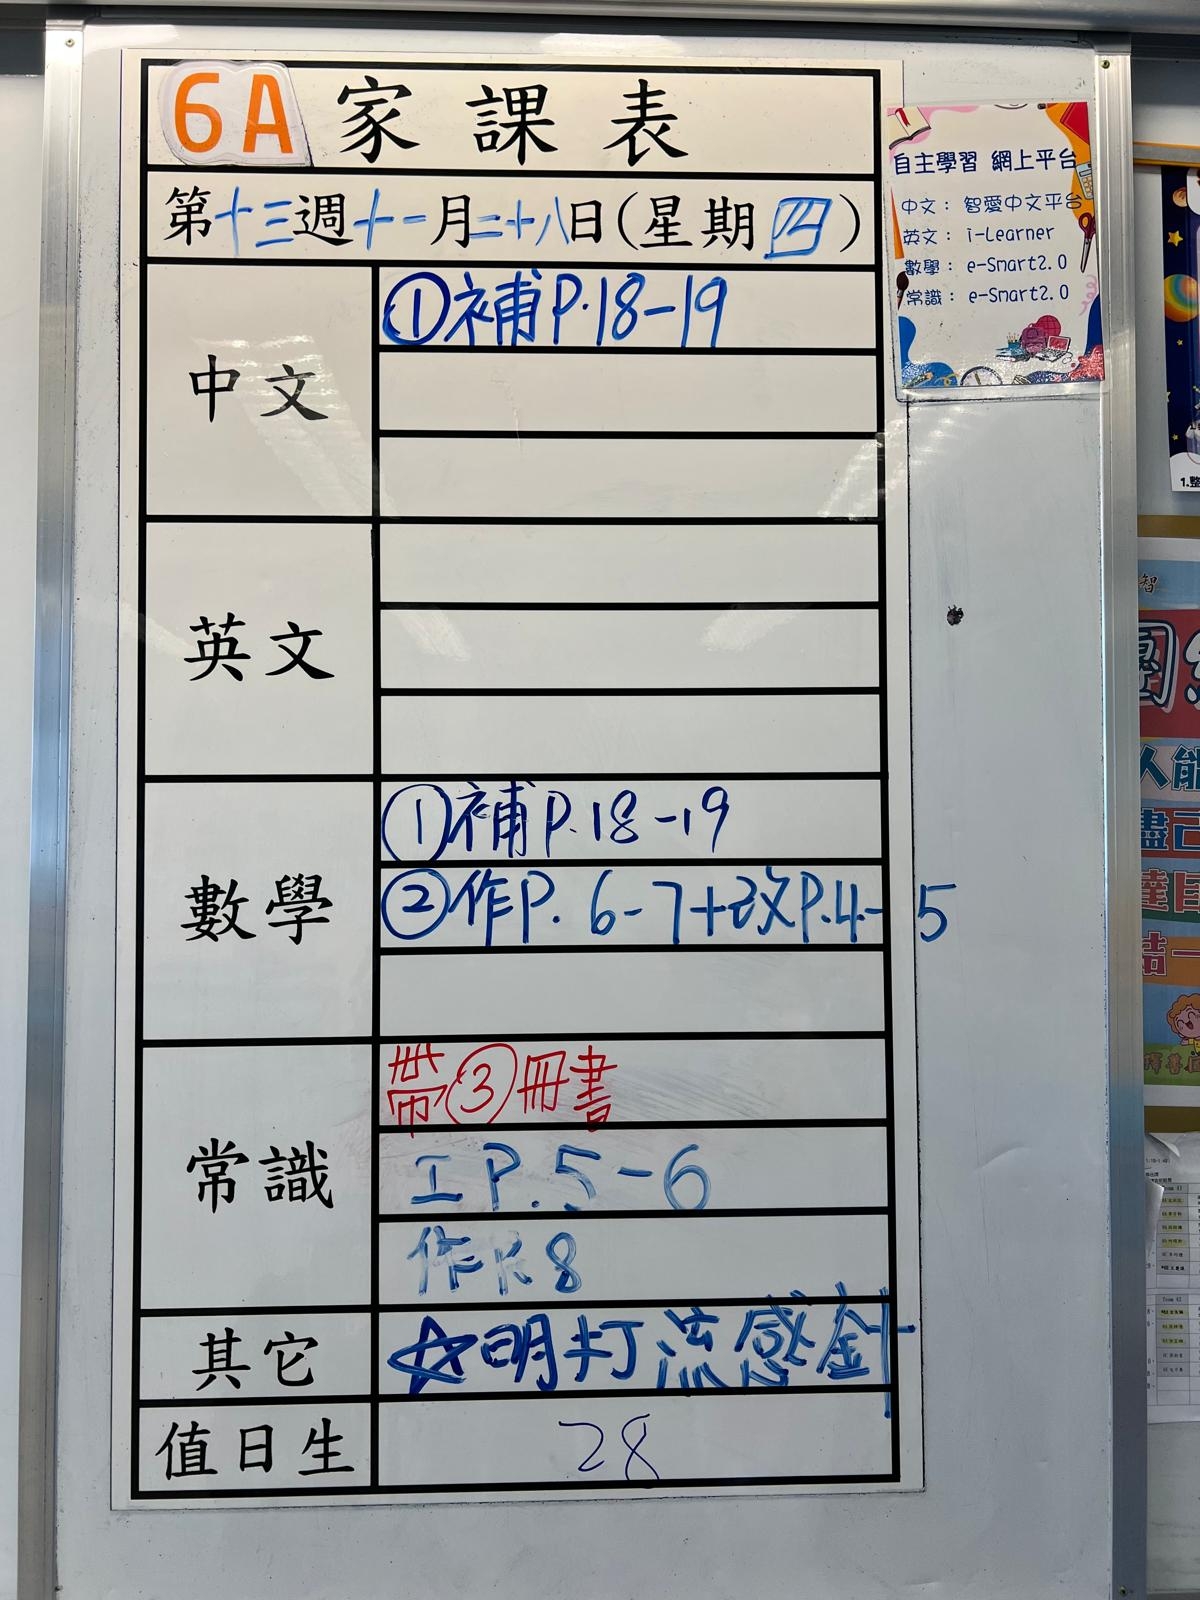 6A 家課表
第十三週十一月二十八日(星期四)
中文
①補P.18-19
英文
數學
①補P.18-19
②作P.6-7+改P.4-5
常識
帶③冊書
工P.5-6
作 8
其它
☆明打流感針
值日生
28
自主學習 網上平台
中文： 智愛中文平台
英文： i-Learner
數學： e-Smart2.0
常識： e-Smart2.0
1.整
智
人能
盡己
達目
結一